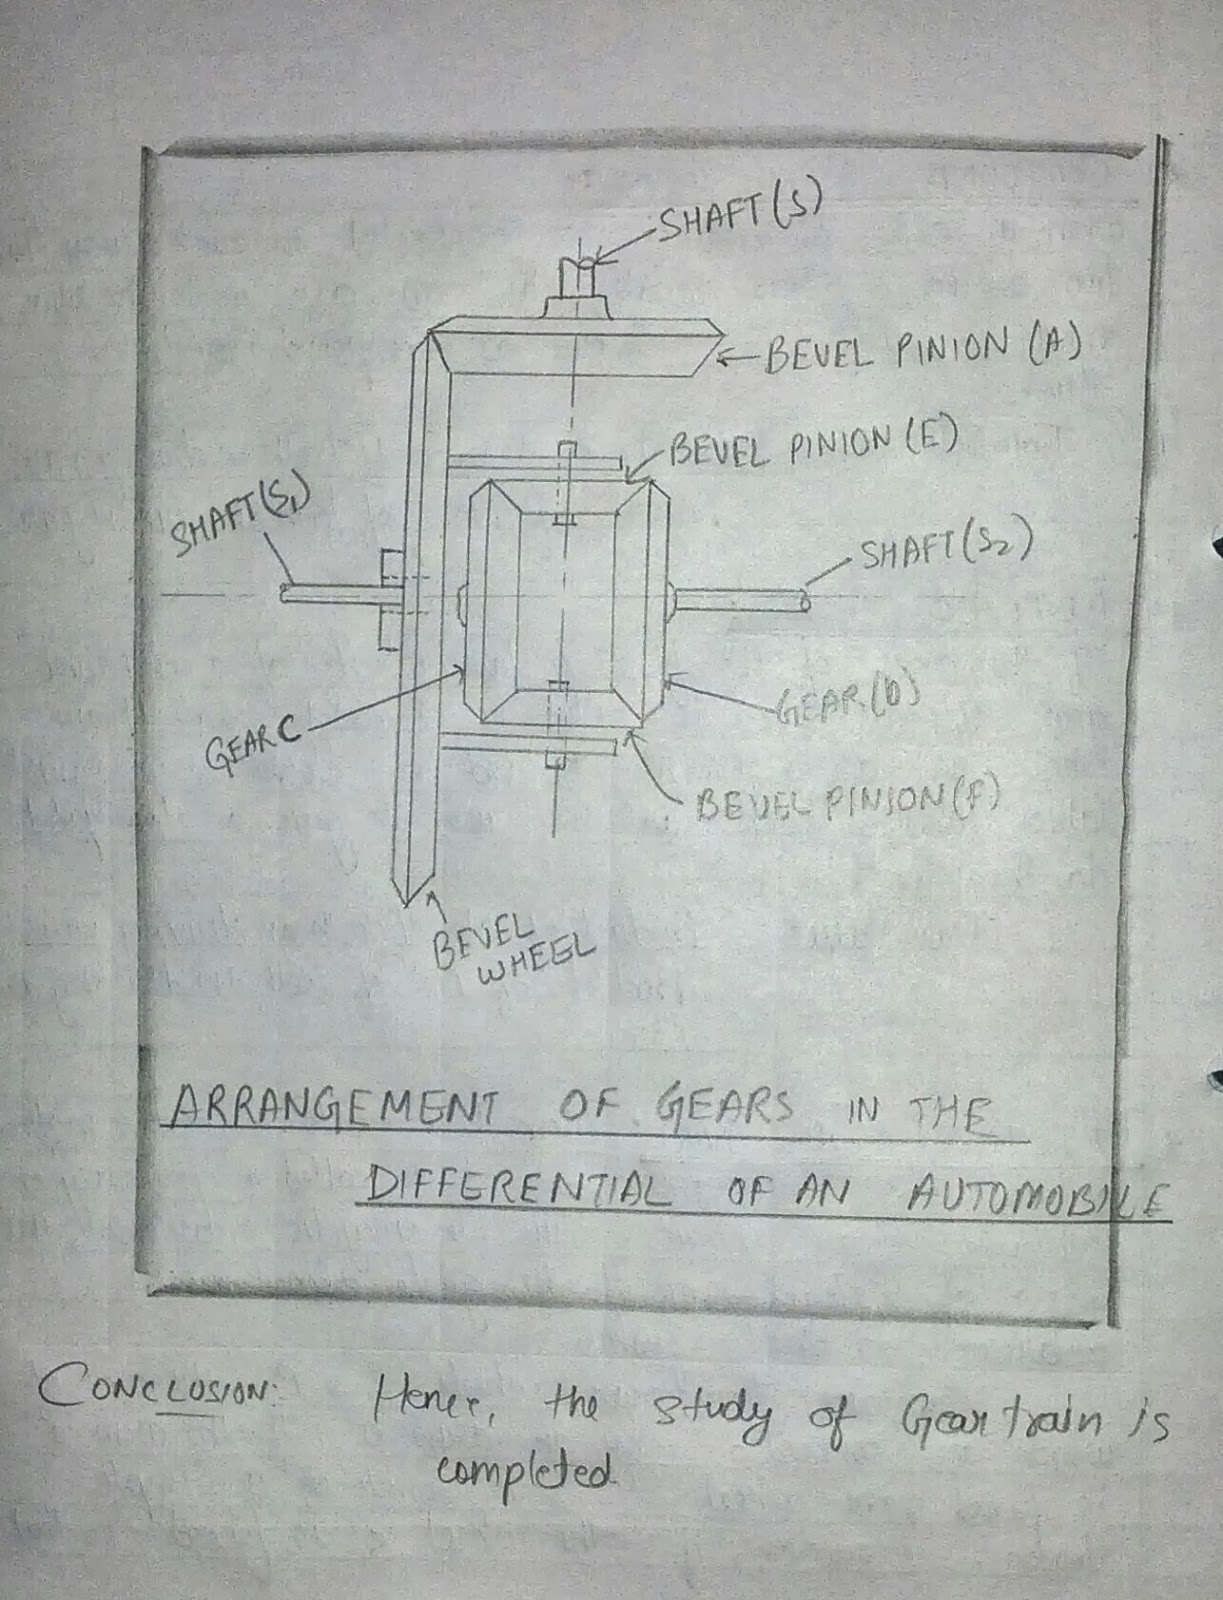 SHAFT(S)
BEVEL PINION (A)
BEVEL PINION (E)
SHAFT(S1)
SHAFT(S2)
GEAR C
GEAR(D)
BEVEL PINION(F)
BEVEL
WHEEL
ARRANGEMENT OF GEARS IN THE
DIFFERENTIAL OF AN AUTOMOBILE
CONCLUSION: Hence, the study of Gear train is
completed